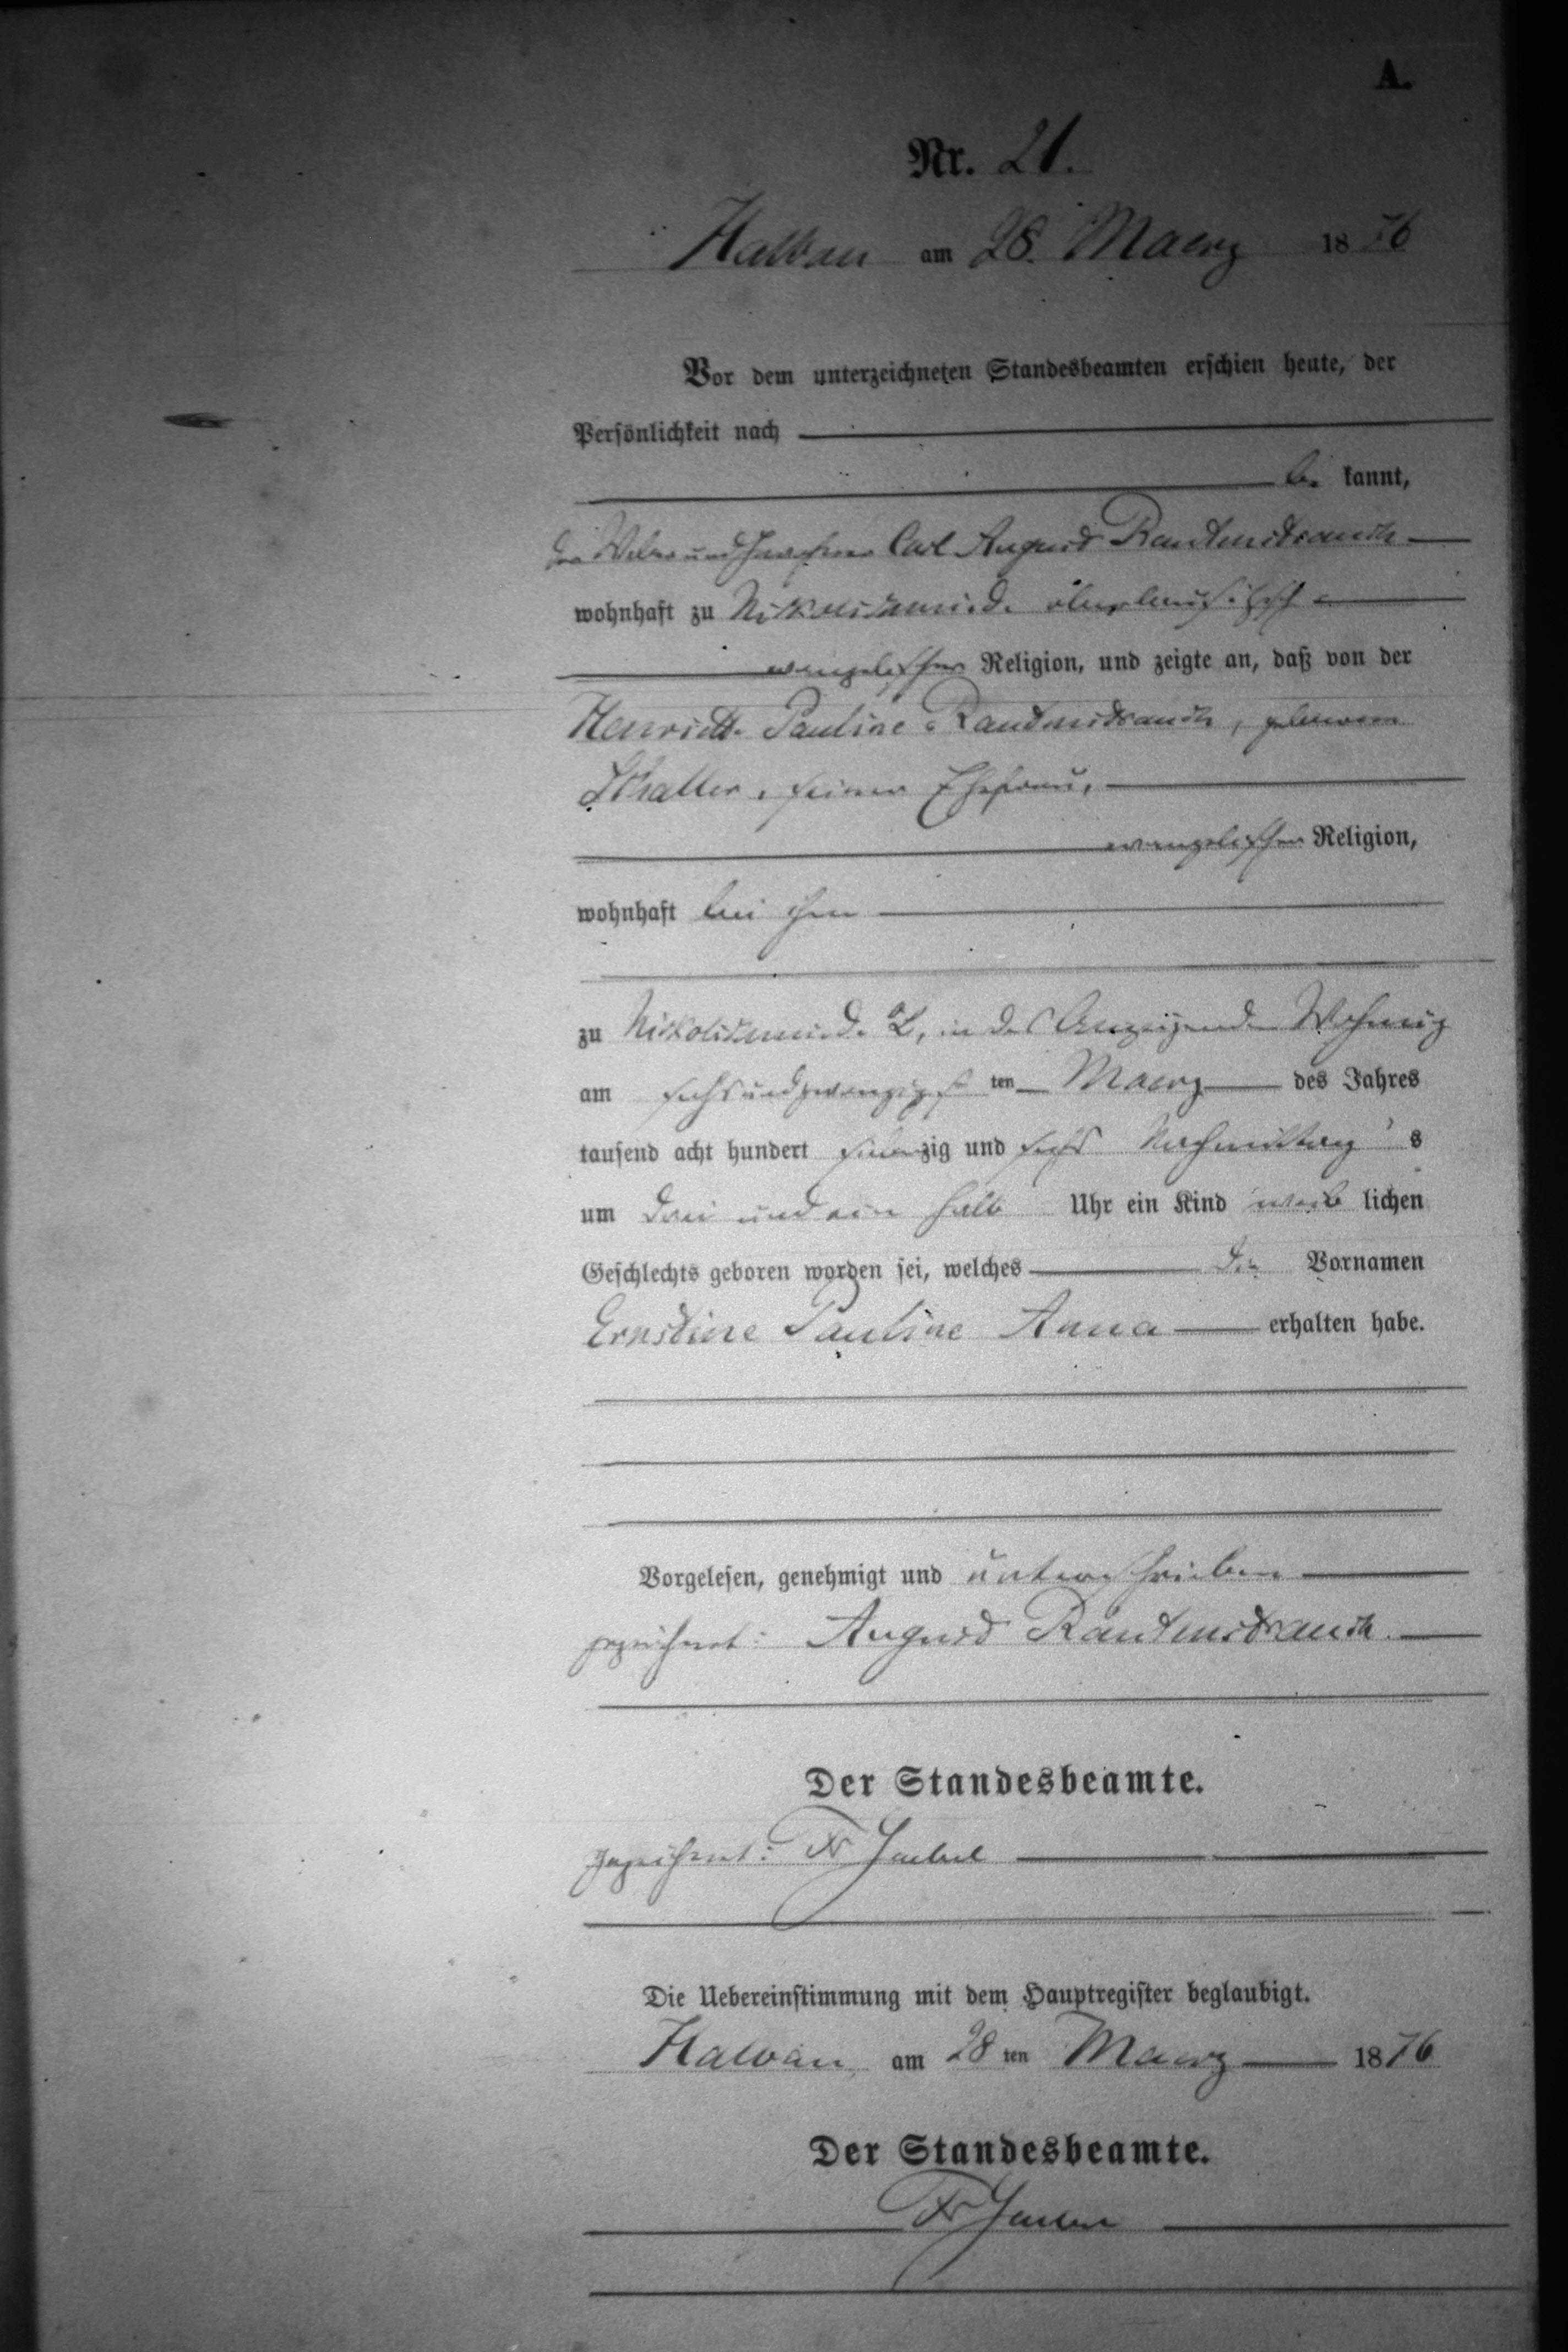 A.
Nr. 21.
Halbau am 28. Maerz 1876
Vor dem unterzeichneten Standesbeamten erschien heute, der
Persönlichkeit nach
be kannt,
der Weber und Carl August Rautenstrauch
wohnhaft zu Nikolschmiede oberlausitzisch
evangelischer Religion, und zeigte an, daß von der
Henriette Pauline Rautenstrauch, geborenen
Schaller, seiner Ehefrau,
evangelischer Religion,
wohnhaft bei ihm
zu Nickolschmiede O/L, in des Anzeigenden Wohnung
am sechsundzwanzigsten Maerz des Jahres
tausend acht hundert siebenzig und sechs Nachmittags
um drei und ein halb Uhr ein Kind weiblichen
Geschlechts geboren worden sei, welches die Vornamen
Ernstine Pauline Anna erhalten habe.
Vorgelesen, genehmigt und unterschrieben
gezeichnet: August Rautenstrauch.
Der Standesbeamte.
gezeichnet: Fr
Die Uebereinstimmung mit dem Hauptregister beglaubigt.
Halbau am 28 ten Maerz 1876
Der Standesbeamte.
Fr